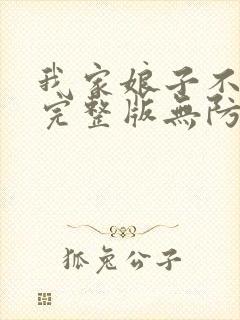 我家娘子不
完整版無防
狐兔公子